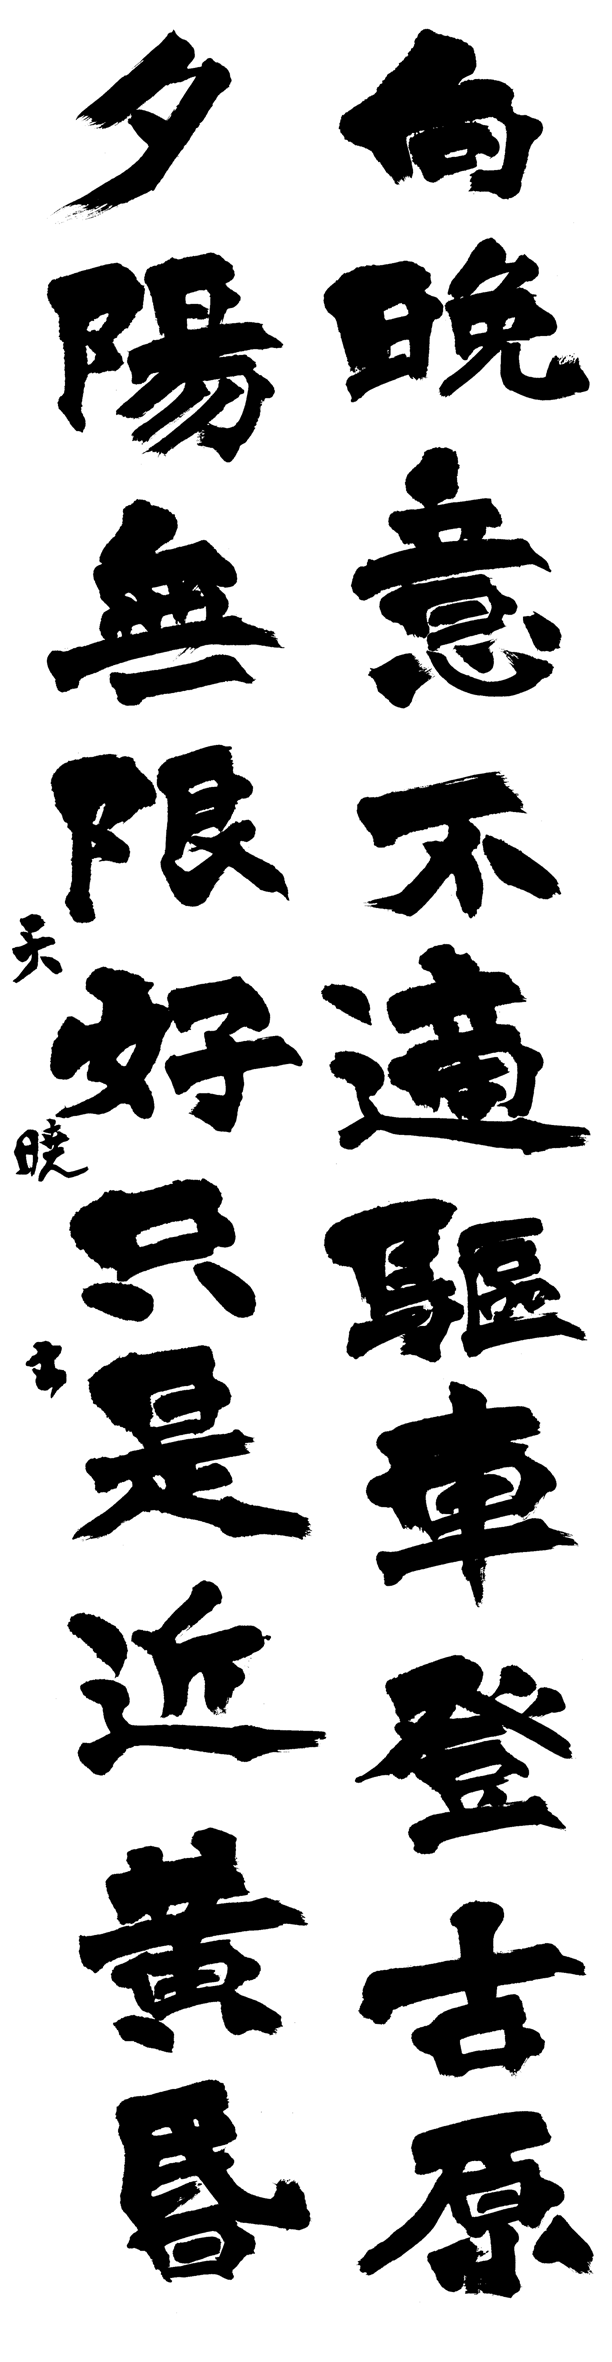 向晚意不適驅車登古原
夕陽無限好只是近黃昏
天曉書